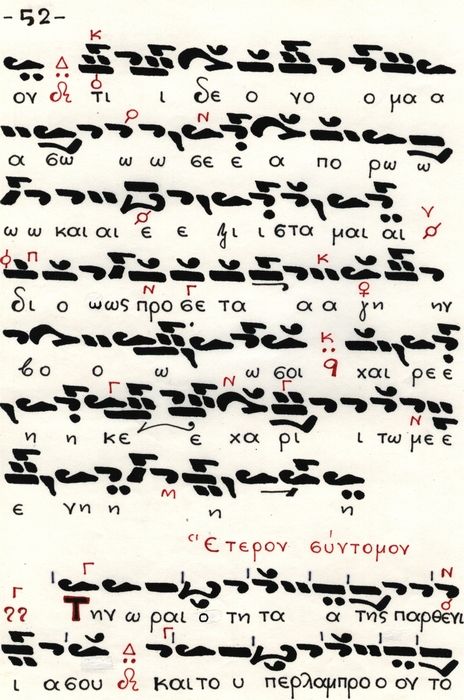 -52-
ον τι ι δε ο νο ο μα α
α σω ω ω σε ε α πο ρω ω
ω ω και αι ε ε ξι ι στα μαι αι
δι ο ωως προ σε τα α α γη ην
βο ο ω ω σοι χαι ρε ε
η η κε ε χα ρι ι τω με ε
ε νη η η η
Ἕτερον σύντομον
Την ω ραι ο τη τα α της παρθενι
ι α σου και το υ περλαμπρο ο ον το